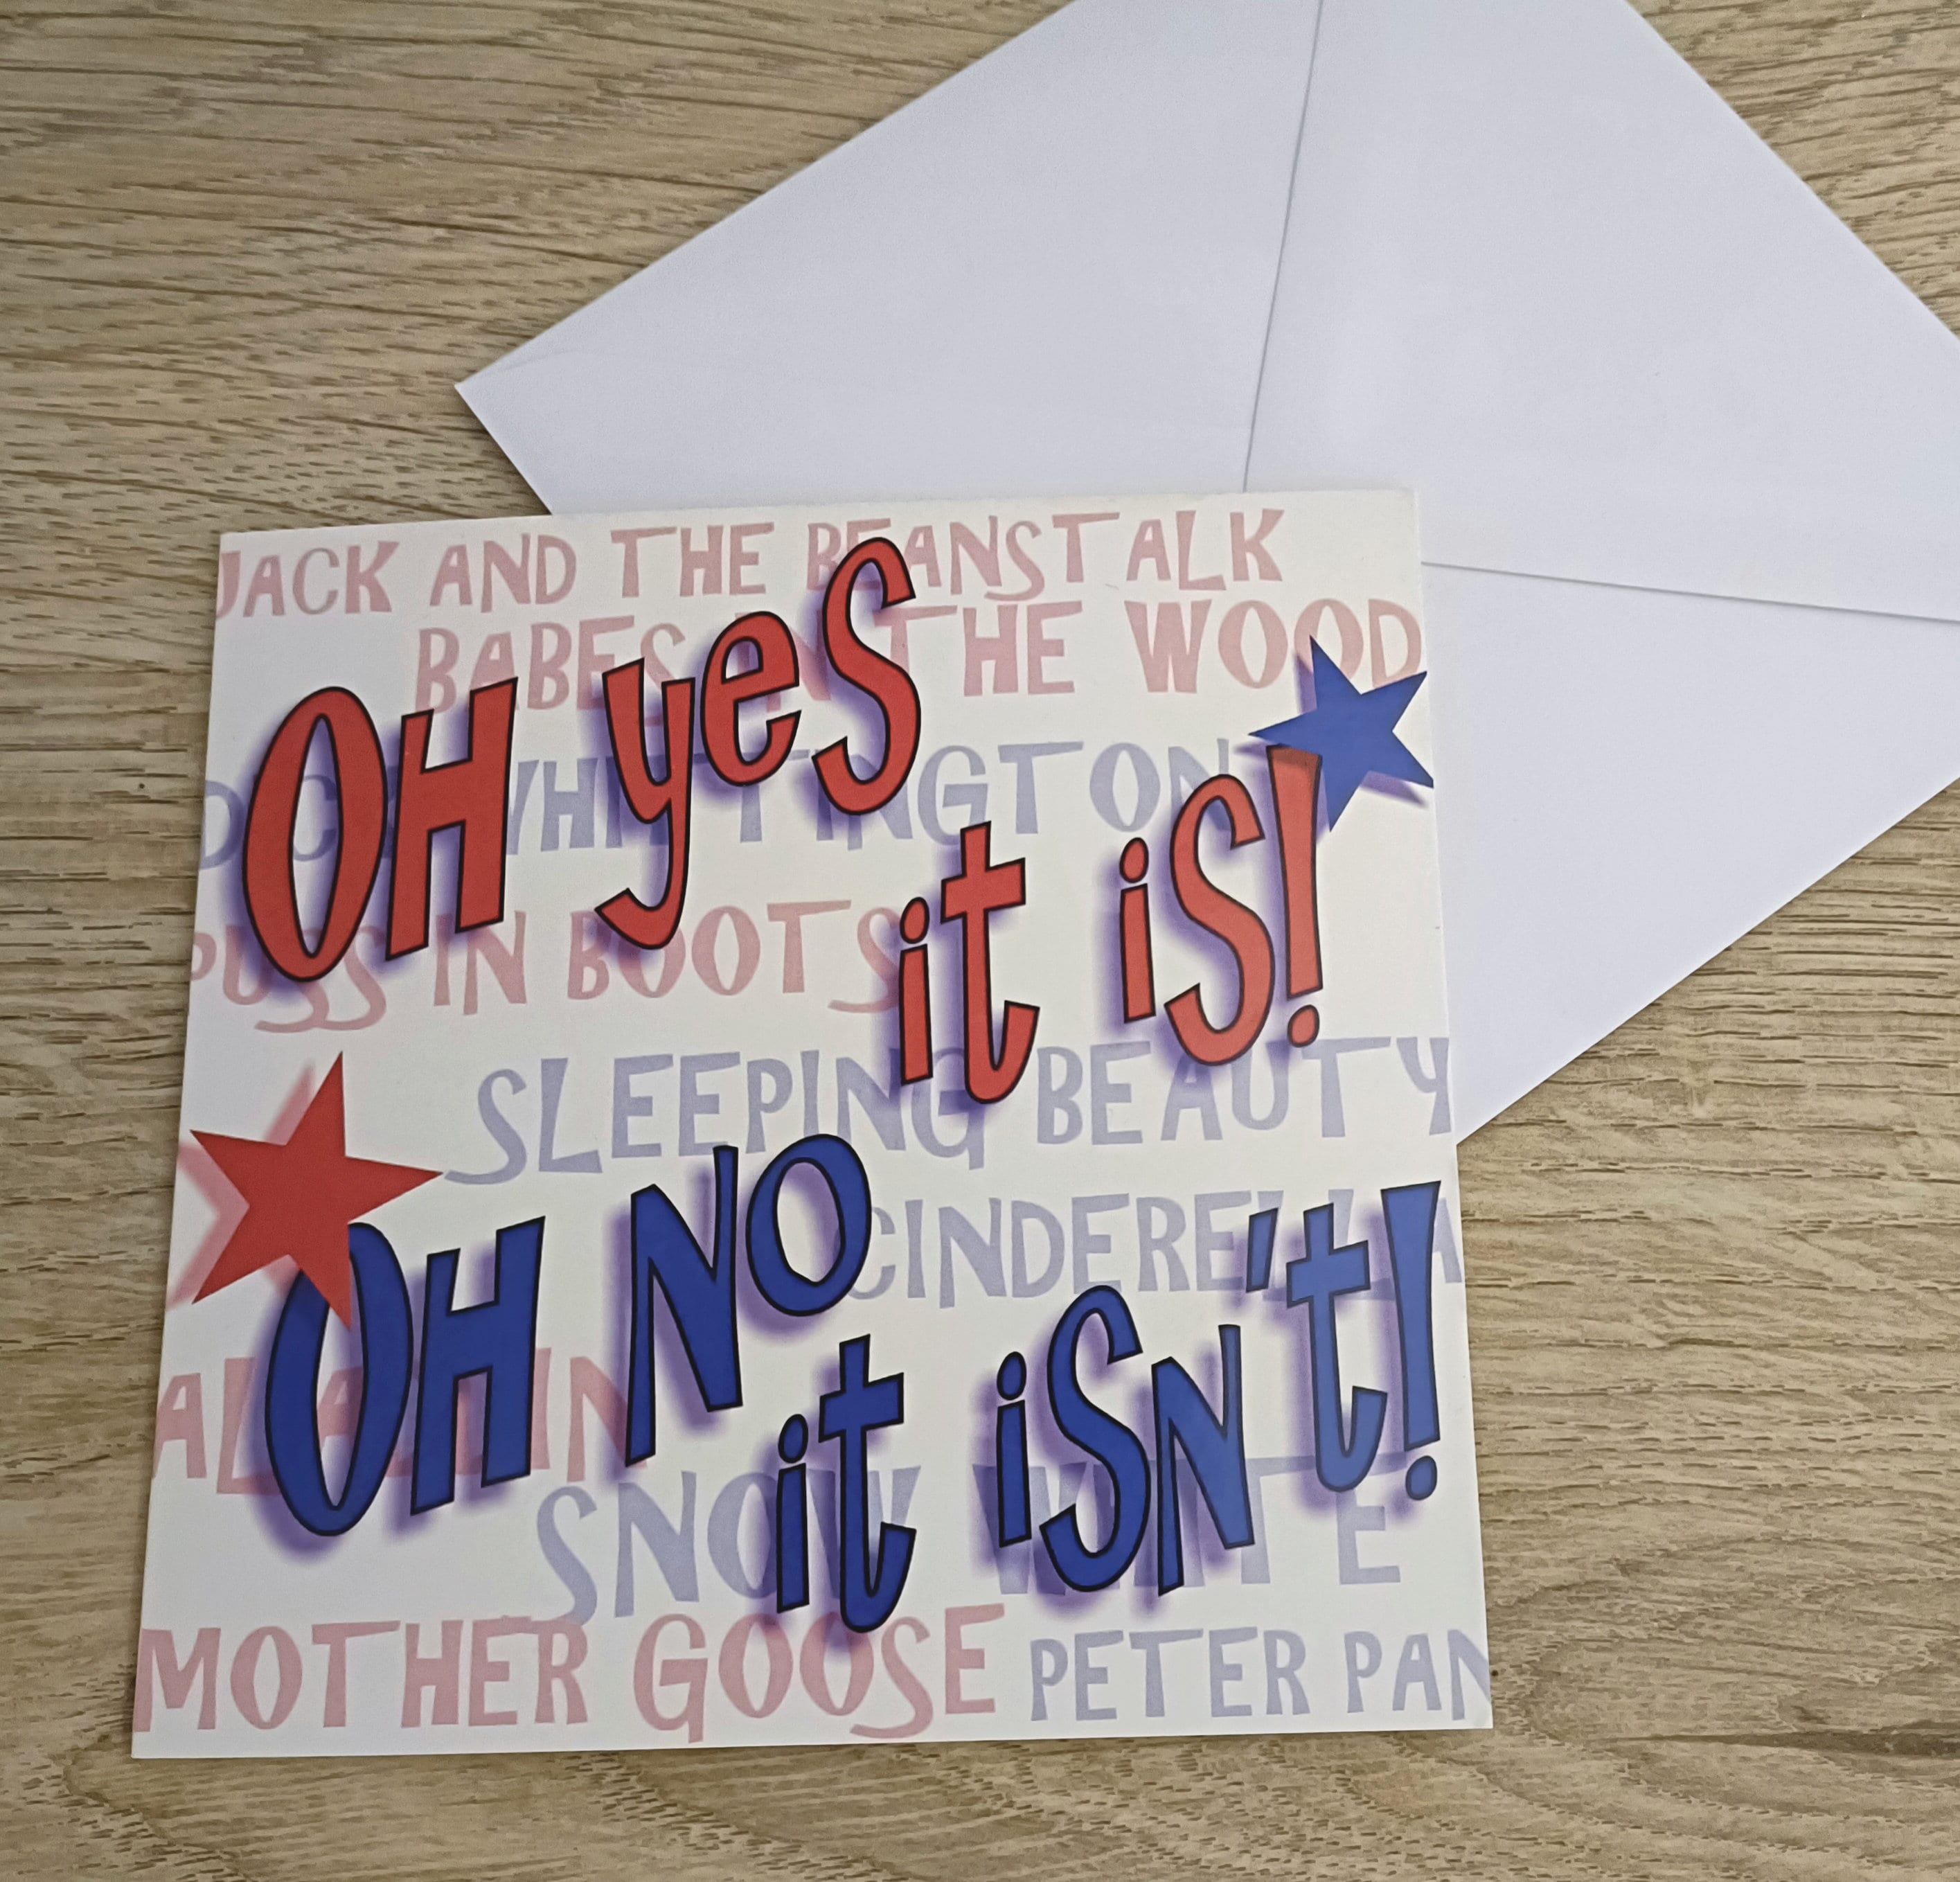 JACK AND THE BEANSTALK
BABES IN THE WOOD
OH yes
DICK WHITTINGTON
it is!
PUSS IN BOOTS
SLEEPING BEAUTY
OH NO
CINDERELLA
it isn't!
ALADDIN
SNOW WHITE
MOTHER GOOSE PETER PAN